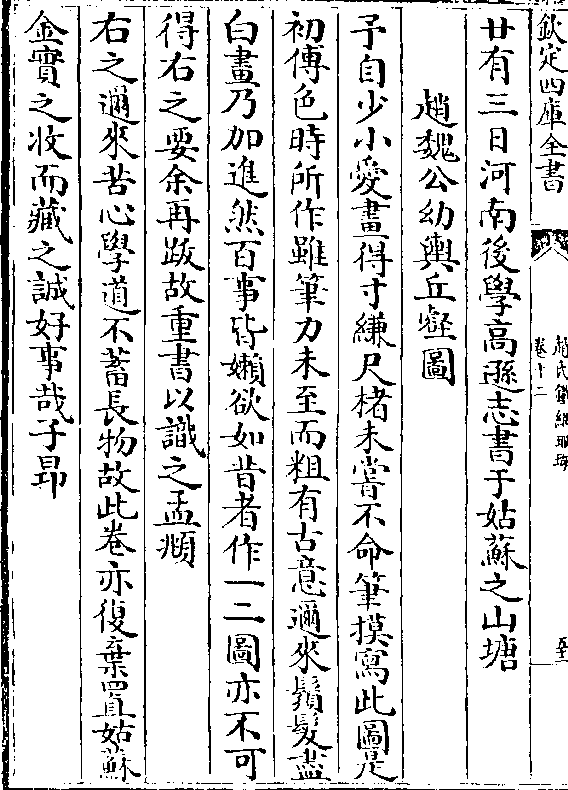 欽定四庫全書
趙氏鐵網珊瑚
卷十二
廿有三日河南後學高遜志書于姑蘇之山塘
趙魏公幼輿丘壑圖
予自少小愛畫得寸縑尺楮未嘗不命筆摸寫此圖是
初傅色時所作雖筆力未至而粗有古意邇來鬚髮盡
白畫乃加進然百事皆嬾欲如昔者作一二圖亦不可
得右之要余再跋故重書以識之孟頫
右之邇來苦心學道不蓄長物故此卷亦復棄置姑蘇
金實之收而藏之誠好事哉子昂